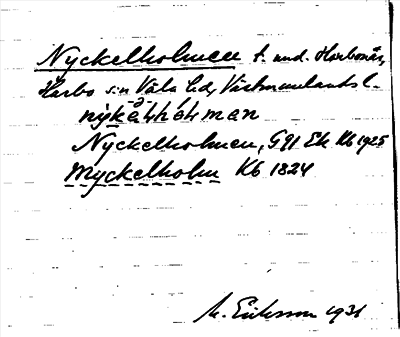 Nyckelholmen t. und. Harbonäs,
Harbo sn Våla hd, Västmanlands l.
Nyckelholmen, G91 Ek Kb 1925
Myckelholm Kb 1824
M. Eriksson 1931